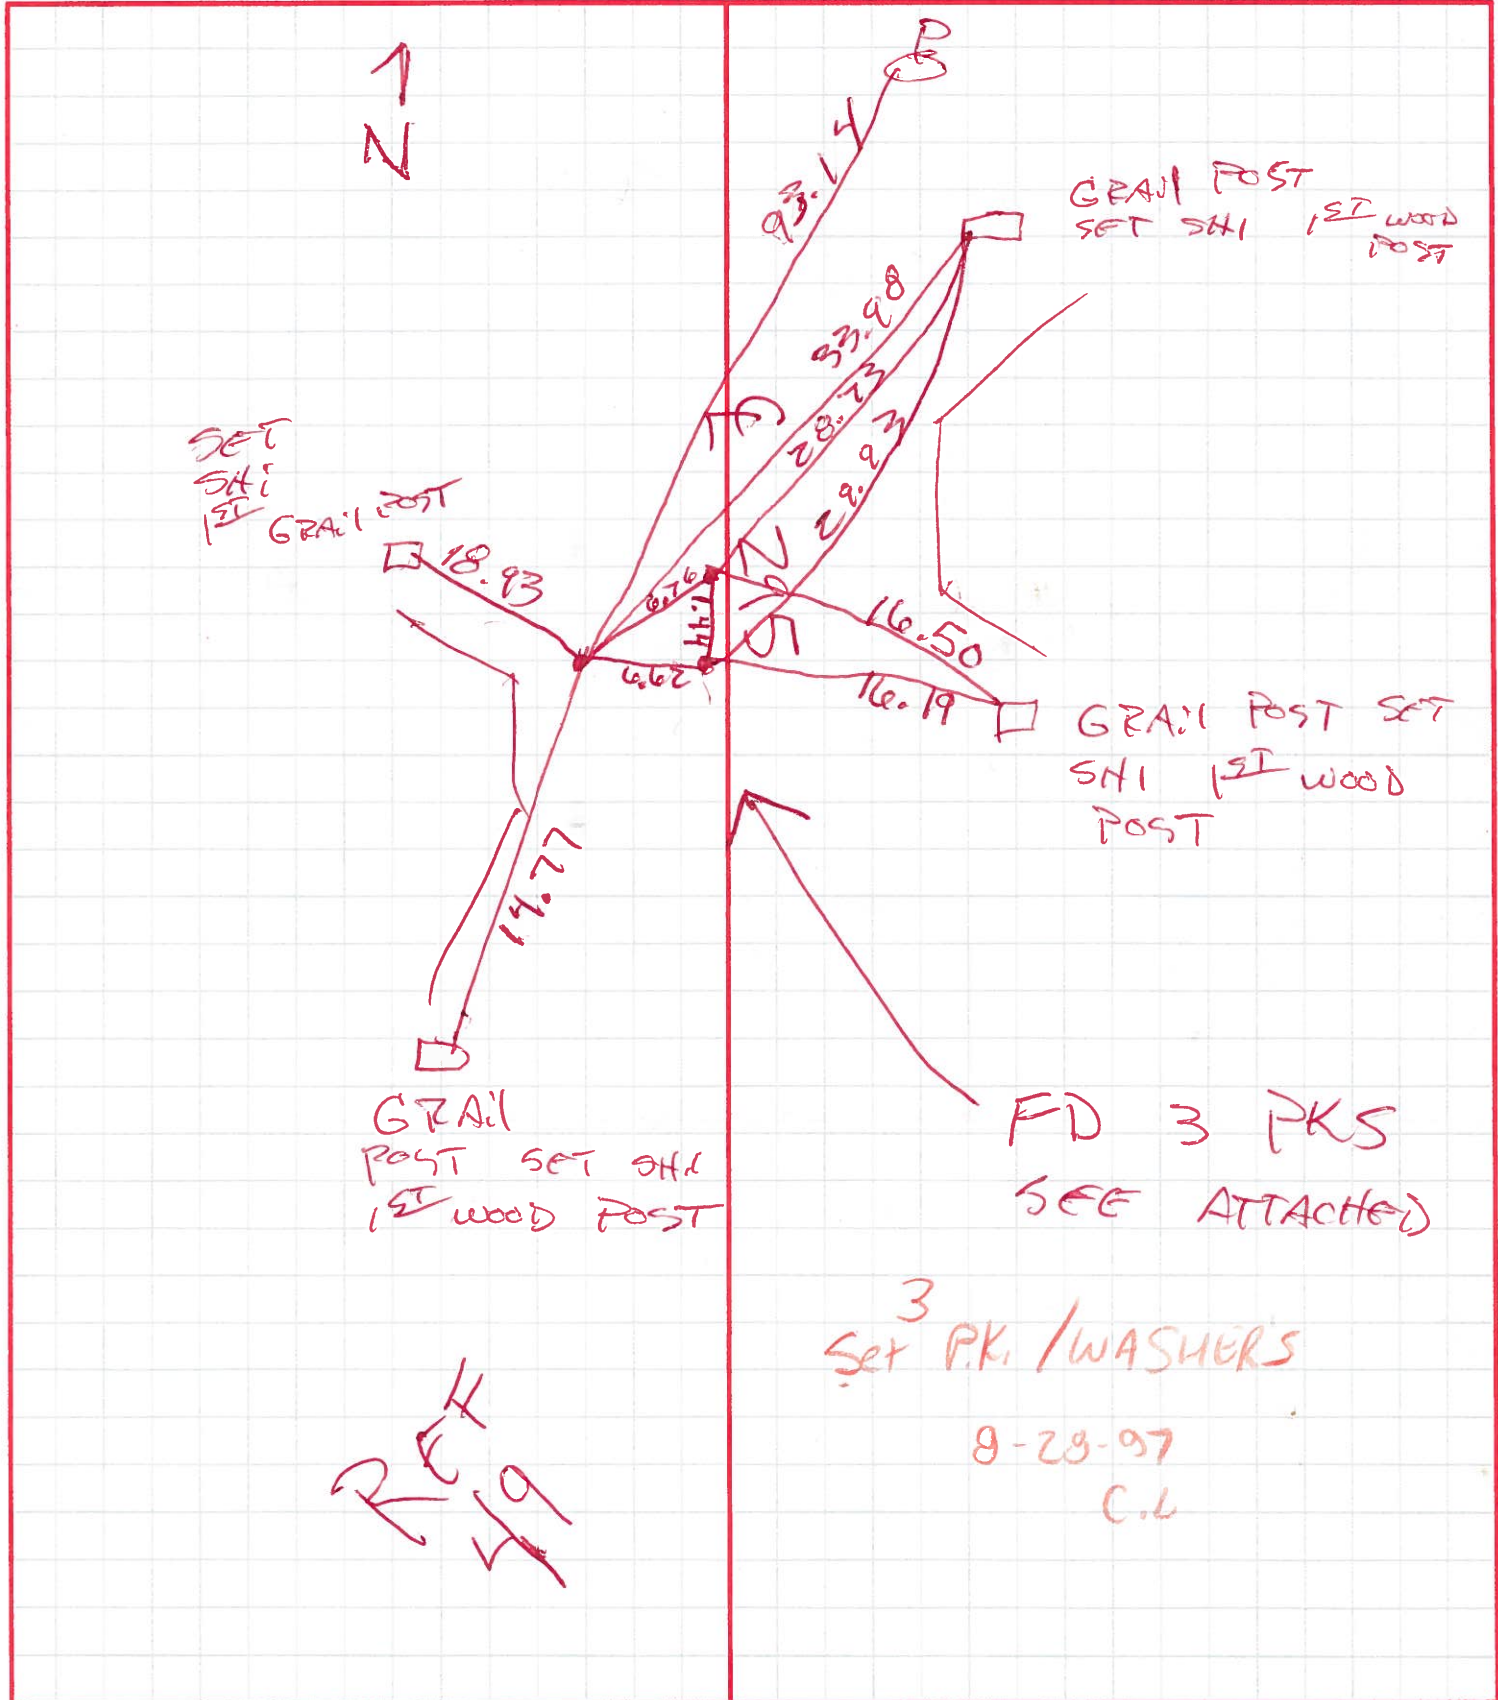 N
P
93.14
GRAil POST
SET SHI 1ST WOOD
POST
33.98
28.73
29.93
SET
SHi
1ST GRAil POST
18.93
6.76
1.44
6.62
16.50
16.19
GRAil POST SET
SHI 1ST WOOD
POST
14.77
GRAil
POST SET SHI
1ST WOOD POST
FD 3 PKS
SEE ATTACHED
3
Set P.K. /WASHERS
8-28-97
C.L